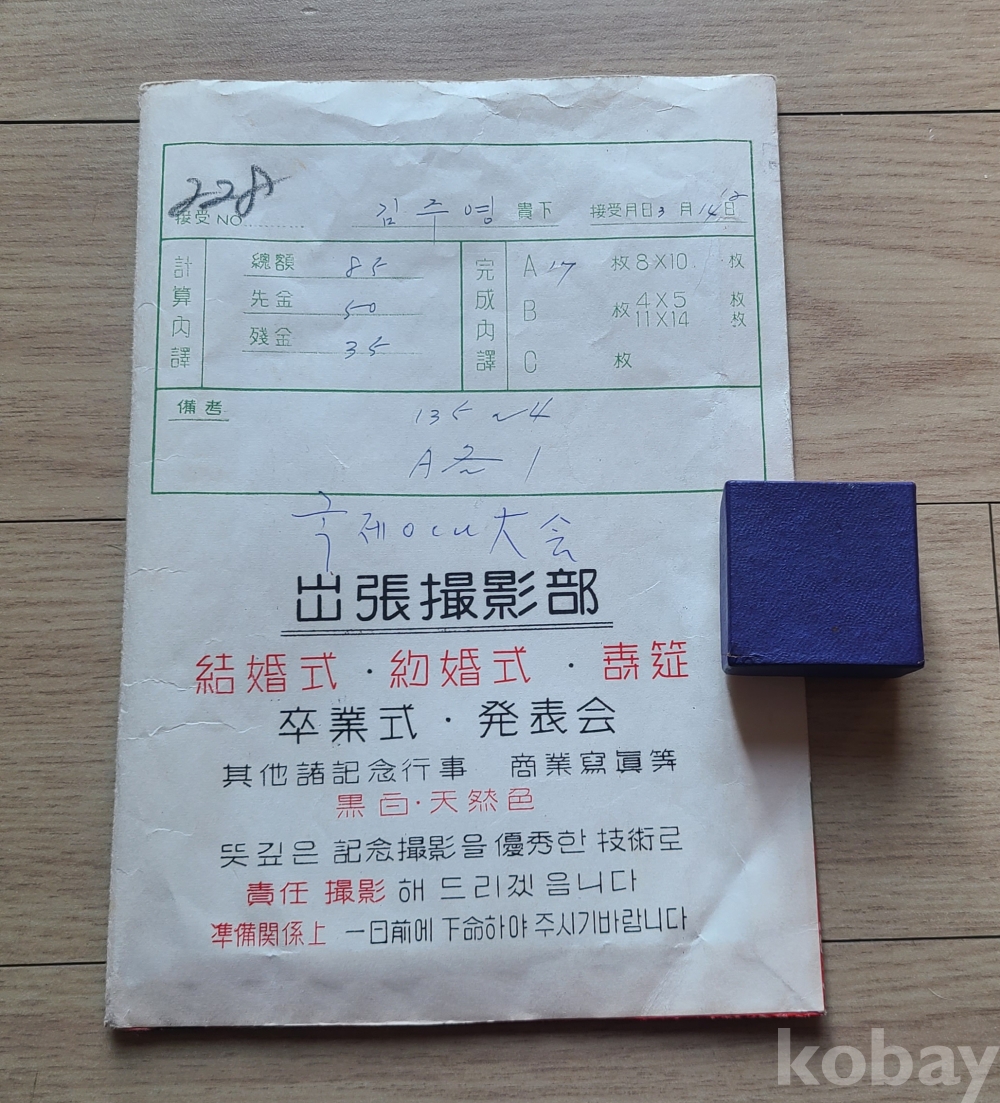 228
接受 NO 김주영 貴下 接受月日 3 月 14 日 12
計算內譯
總額 85
先金 50
残金 35
完成內譯
A 17 枚 8X10 枚
B 枚 4X5 枚
11X14 枚
C 枚
備考
135 ~4
A 各 1
국제 ocu 大会
出張撮影部
結婚式 · 約婚式 · 壽筵
卒業式 · 発表会
其他諸記念行事 商業寫眞等
黒白·天然色
뜻깊은 記念撮影을 優秀한 技術로
責任 撮影해 드리겠읍니다
準備関係上 一日前에 下命하야 주시기바랍니다
kobay